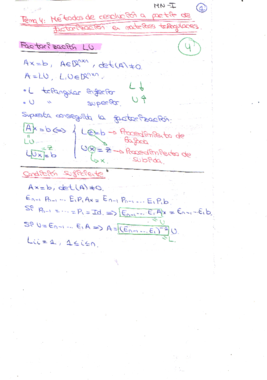 MN-I
Tema 4: Métodos de resolución a partir de
factorización en matrices triangulares
4
Factorización LU
Ax=b, A∈ℝⁿˣⁿ, det(A)≠0.
A=LU, L,U∈ℝⁿˣⁿ.
·L triangular inferior L↓
·U " superior. U↑
Supuesta conseguida la factorización:
Ax=b ⟺ Lz=b → Procedimiento de
LU bajada
LUx=b =z Ux=z → Procedimiento de
subida.
Condición suficiente
Ax=b, det(A)≠0.
Eₙ₋₁ Pₙ₋₁ ... E₁P₁Ax = Eₙ₋₁ Pₙ₋₁ ... E₁P₁b.
Si Pₙ₋₁=...=P₁=Id. ⟹ Eₙ₋₁...E₁Ax = Eₙ₋₁...E₁b.
Si U=Eₙ₋₁...E₁A ⟹ A=(Eₙ₋₁...E₁)⁻¹U
L
Lᵢᵢ=1, 1≤i≤n.